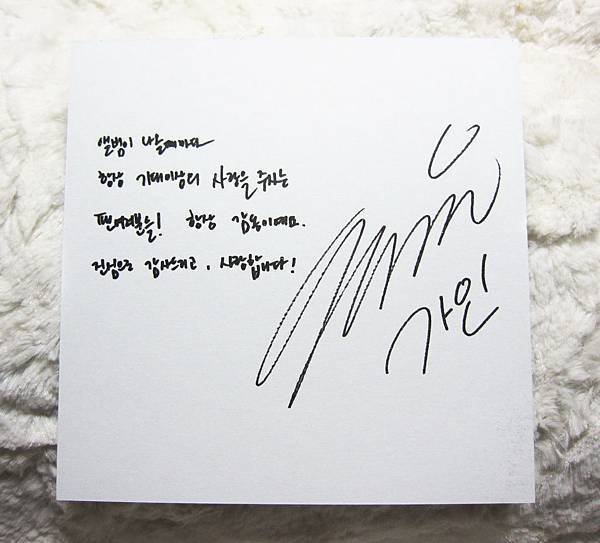 앨범이 나올때마다
항상 기대이상의 사랑을 주시는
팬여러분들! 항상 감동이예요.
진심으로 감사드리고, 사랑합니다!
가인